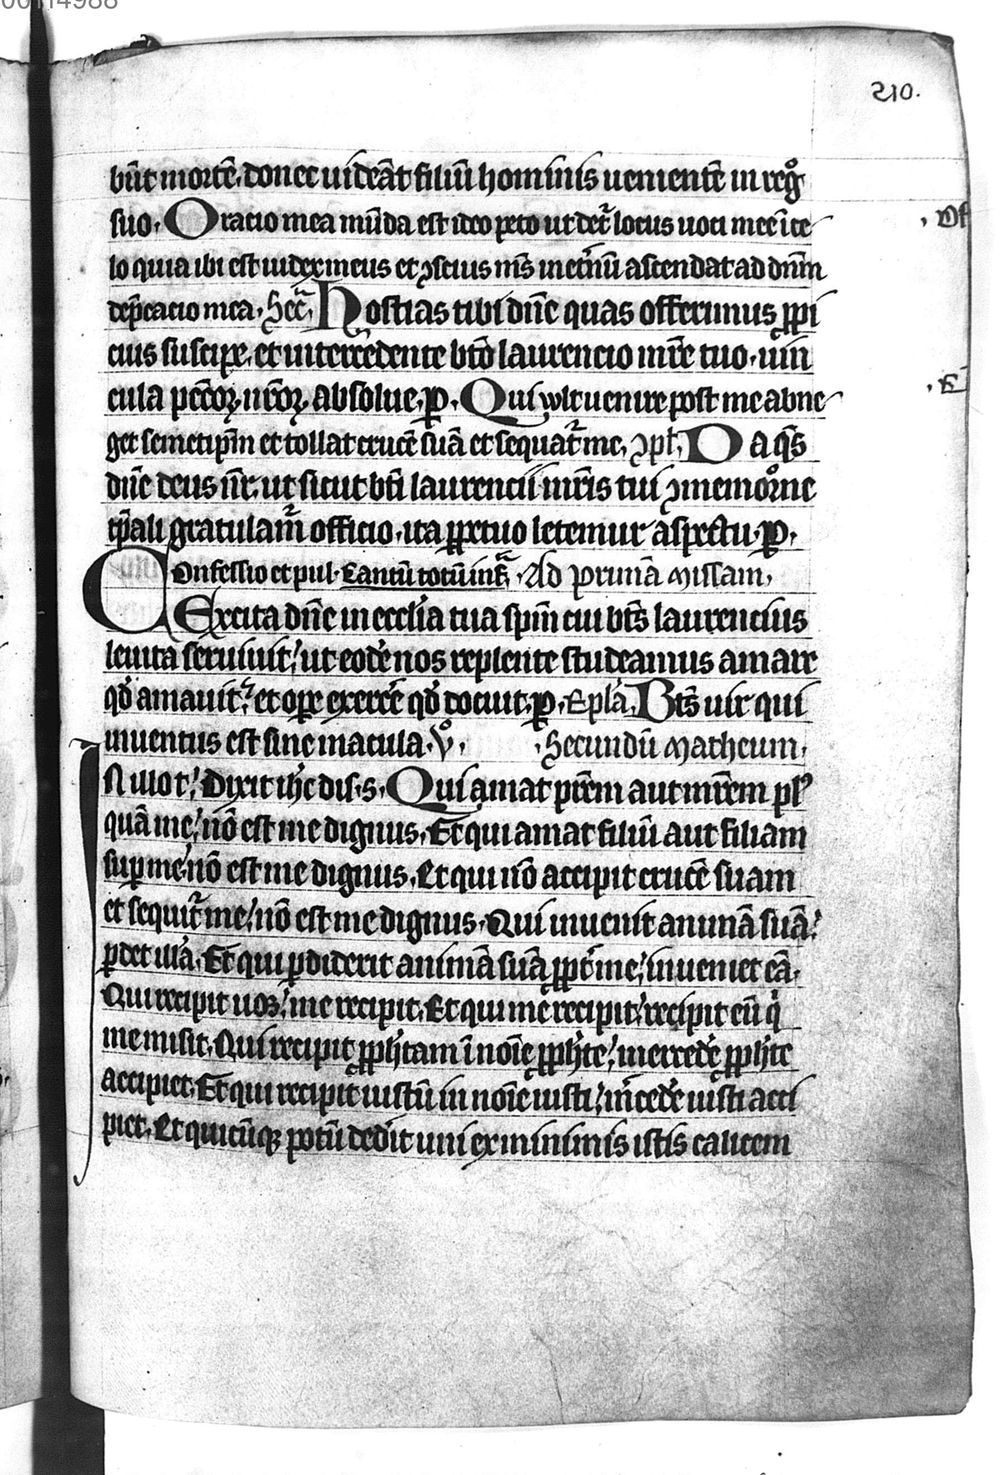 00114988
210.
būt mortē. donec uideāt filiū hominis uenientē in regͦ
suo. Oracio mea mūda est ideo peto ut detͬ locus uoci mee ī ce
, Of
lo quia ibi est iudex meus et ꝯscius mꝰs in celis ascendat ad dnm̄
dep̄cacio mea. Secͬ. Hostias tibi dn̄e quas offerimus ꝓpi
cius suscipe. et intercedente btō laurencio mr̄e tuo. uin
cula pcc̄oꝝ nr̄oꝝ absolue. ꝑ. Qui wlt uenire post me abne
. C̄
get semetip̄m et tollat crucē suā et sequatͬ me, ꝯpl. Da qs̄
dn̄e deus nr̄. ut sicut btī laurencii mr̄is tui ꝯmemorͦne
tp̄ali gratulamͬ officio. ita ꝑpetuo letemur aspectu. ꝑ.
Confessio et pul. Cantū totū inͣ. Ad primā missam.
Excita dn̄e in eccl̄ia tua spm̄ cui bt̄s laurencius
leuita seruiuit. ut eodē nos replente studeamus amare
qd̄ amauit. et oꝑe exercē qd̄ docuit. ꝑ. Epl̄a. Bt̄s uir qui
inuentus est sine macula. Vͦ. . Secundū Matheum.
In illo t. Dixit ih̄c dis. s. Qui amat pr̄em aut mr̄em pl
quā me. nō est me dignus. Et qui amat filiū aut filiam
suꝑ me. nō est me dignus. Et qui nō accipit crucē suam
et sequitͬ me. nō est me dignus. Qui inuenit animā suā.
ꝑdet illā. Et qui ꝑdiderit animā suā ꝓpt̄ me. inueniet eā.
Qui recipit uos. me recipit. Et qui me recipit. recipit eū q̇
me misit. Qui recipit ꝓph̄tam ī noīe ꝓph̄te. mercedē ꝓph̄te
accipiet. Et qui recipit iustū in noīe iusti. m̄cedē iusti acci
piet. Et quicūqꝫ potū dederit uni ex minimis istis calicem